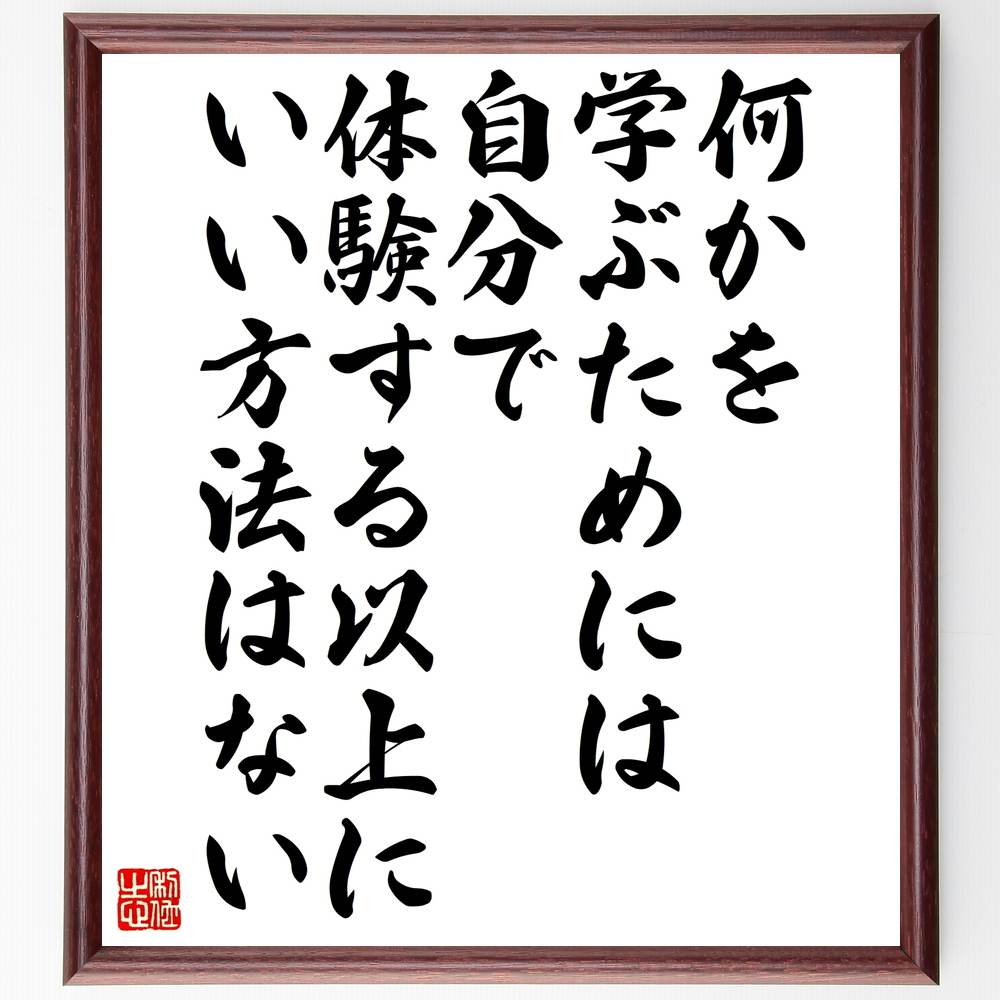 何かを
学ぶためには
自分で
体験する以上に
いい方法はない